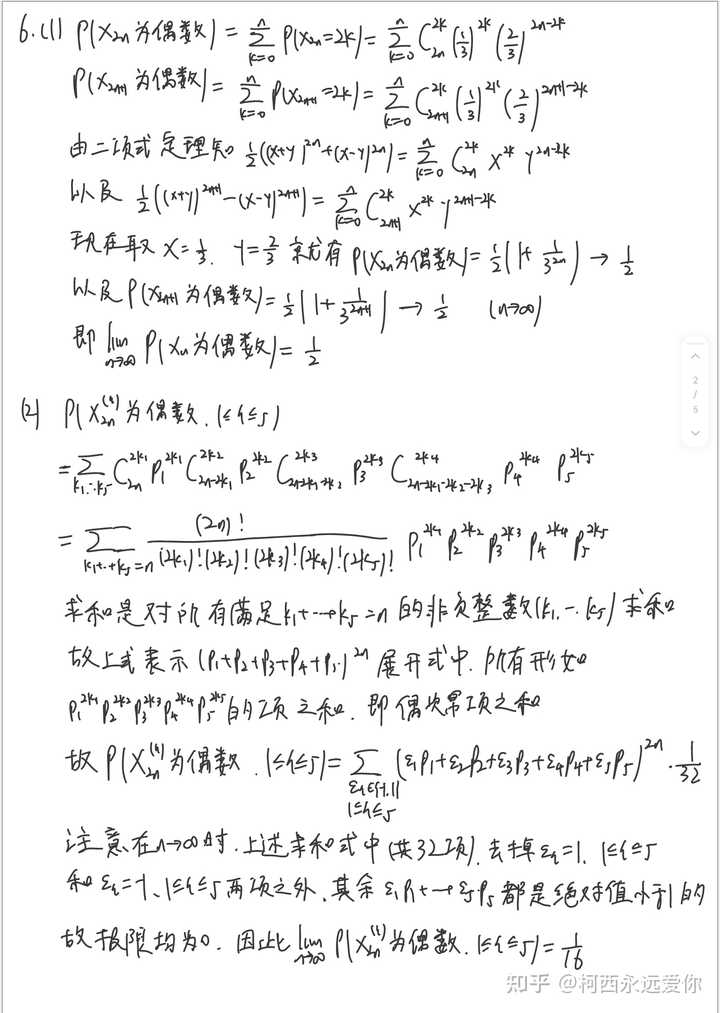 6.(1) P(X₂ₙ为偶数) = ∑ₖ₌₀ⁿ P(X₂ₙ=2k) = ∑ₖ₌₀ⁿ C₂ₙ²ᵏ (1/3)²ᵏ (2/3)²ⁿ⁻²ᵏ
P(X₂ₙ₊₁为偶数) = ∑ₖ₌₀ⁿ P(X₂ₙ₊₁=2k) = ∑ₖ₌₀ⁿ C₂ₙ₊₁²ᵏ (1/3)²ᵏ (2/3)²ⁿ⁺¹⁻²ᵏ
由二项式定理知 1/2((x+y)²ⁿ+(x-y)²ⁿ) = ∑ₖ₌₀ⁿ C₂ₙ²ᵏ x²ᵏ y²ⁿ⁻²ᵏ
以及 1/2((x+y)²ⁿ⁺¹-(x-y)²ⁿ⁺¹) = ∑ₖ₌₀ⁿ C₂ₙ₊₁²ᵏ x²ᵏ y²ⁿ⁺¹⁻²ᵏ
现在取 x=1/3, y=2/3 就有 P(X₂ₙ为偶数) = 1/2(1+1/3²ⁿ) → 1/2
以及 P(X₂ₙ₊₁为偶数) = 1/2(1+1/3²ⁿ⁺¹) → 1/2 (n→∞)
即 lim n→∞ P(Xₙ为偶数) = 1/2
(2) P(X₂ₙ⁽ⁱ⁾为偶数, 1≤i≤5)
= ∑ k₁…k₅ C₂ₙ^(2k₁) p₁^(2k₁) C₂ₙ₋₂ₖ₁^(2k₂) p₂^(2k₂) C_(2n-2k₁-2k₂)^(2k₃) p₃^(2k₃) C_(2n-2k₁-2k₂-2k₃)^(2k₄) p₄^(2k₄) p₅^(2k₅)
= ∑ k₁+…+k₅=n (2n)!/((2k₁)!(2k₂)!(2k₃)!(2k₄)!(2k₅)!) p₁^(2k₁) p₂^(2k₂) p₃^(2k₃) p₄^(2k₄) p₅^(2k₅)
求和是对所有满足k₁+…+k₅=n的非负整数(k₁,…,k₅)求和
故上式表示(p₁+p₂+p₃+p₄+p₅)²ⁿ展开式中,所有形如
p₁^(2k₁) p₂^(2k₂) p₃^(2k₃) p₄^(2k₄) p₅^(2k₅)的项之和,即偶次幂项之和
故 P(X₂ₙ⁽ⁱ⁾为偶数, 1≤i≤5) = ∑ εᵢ∈{-1,1} 1≤i≤5 (ε₁p₁+ε₂p₂+ε₃p₃+ε₄p₄+ε₅p₅)²ⁿ·1/32
注意在n→∞时,上述求和式中(共32项),去掉εᵢ=1, 1≤i≤5
和εᵢ=-1, 1≤i≤5两项之外,其余ε₁p₁+…+ε₅p₅都是绝对值小于1的
故极限均为0. 因此 lim n→∞ P(X₂ₙ⁽ⁱ⁾为偶数, 1≤i≤5) = 1/16
2
/
5
知乎 @柯西永远爱你